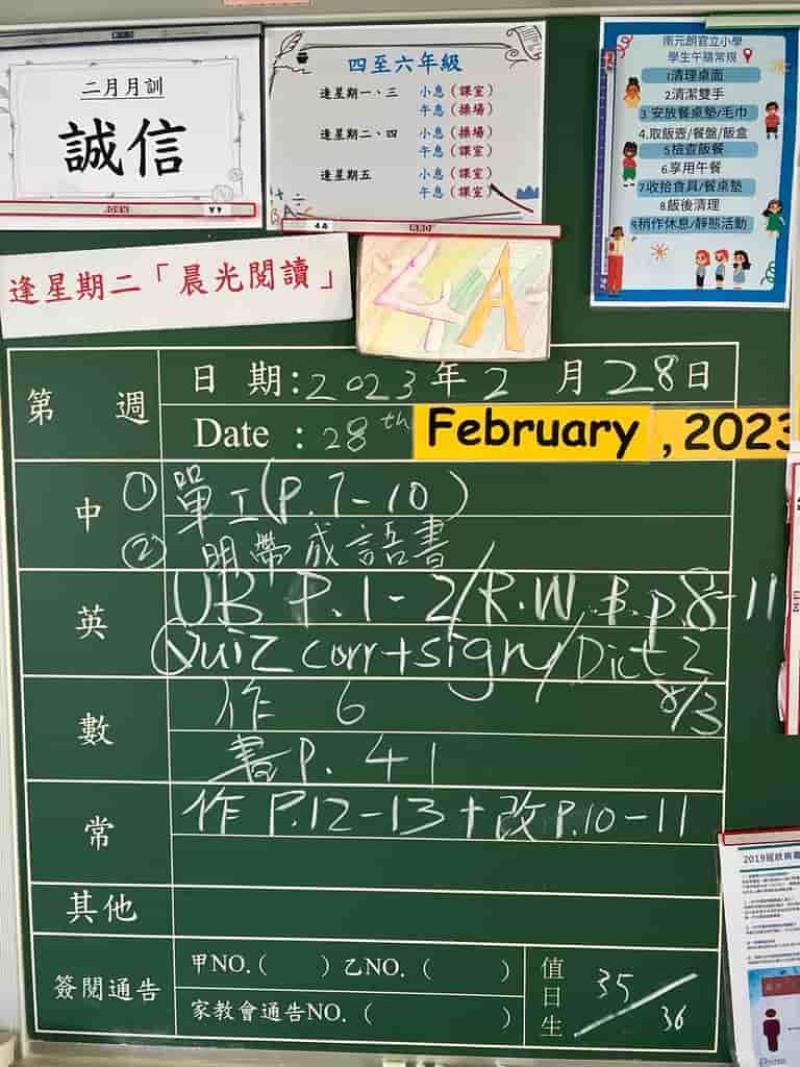 二月月訓
誠信
四至六年級
逢星期一、三 小息（課室）
午息（操場）
逢星期二、四 小息（操場）
午息（課室）
逢星期五 小息（課室）
午息（課室）
南元朗官立小學
學生午膳常規
1清理桌面
2.清潔雙手
3.安放餐桌墊/毛巾
4.取飯壺/餐盤/飯盒
5檢查飯餐
6.享用午餐
7收拾食具/餐桌墊
8.飯後清理
9.稍作休息/靜態活動
逢星期二「晨光閱讀」
4A
第 週
日 期:2023年2月28日
Date : 28th February, 2023
中 ① 單工(P.7-10)
② 明帶成語書
英 UB P.1-2/R.W.B.p8-11
Quiz corr+sign/Dict 2
8/3
數 作 6
書P. 41
常 作 P.12-13+改P.10-11
其他
簽閱通告
甲NO.( )乙NO.( )
家教會通告NO.( )
值日生 35/36